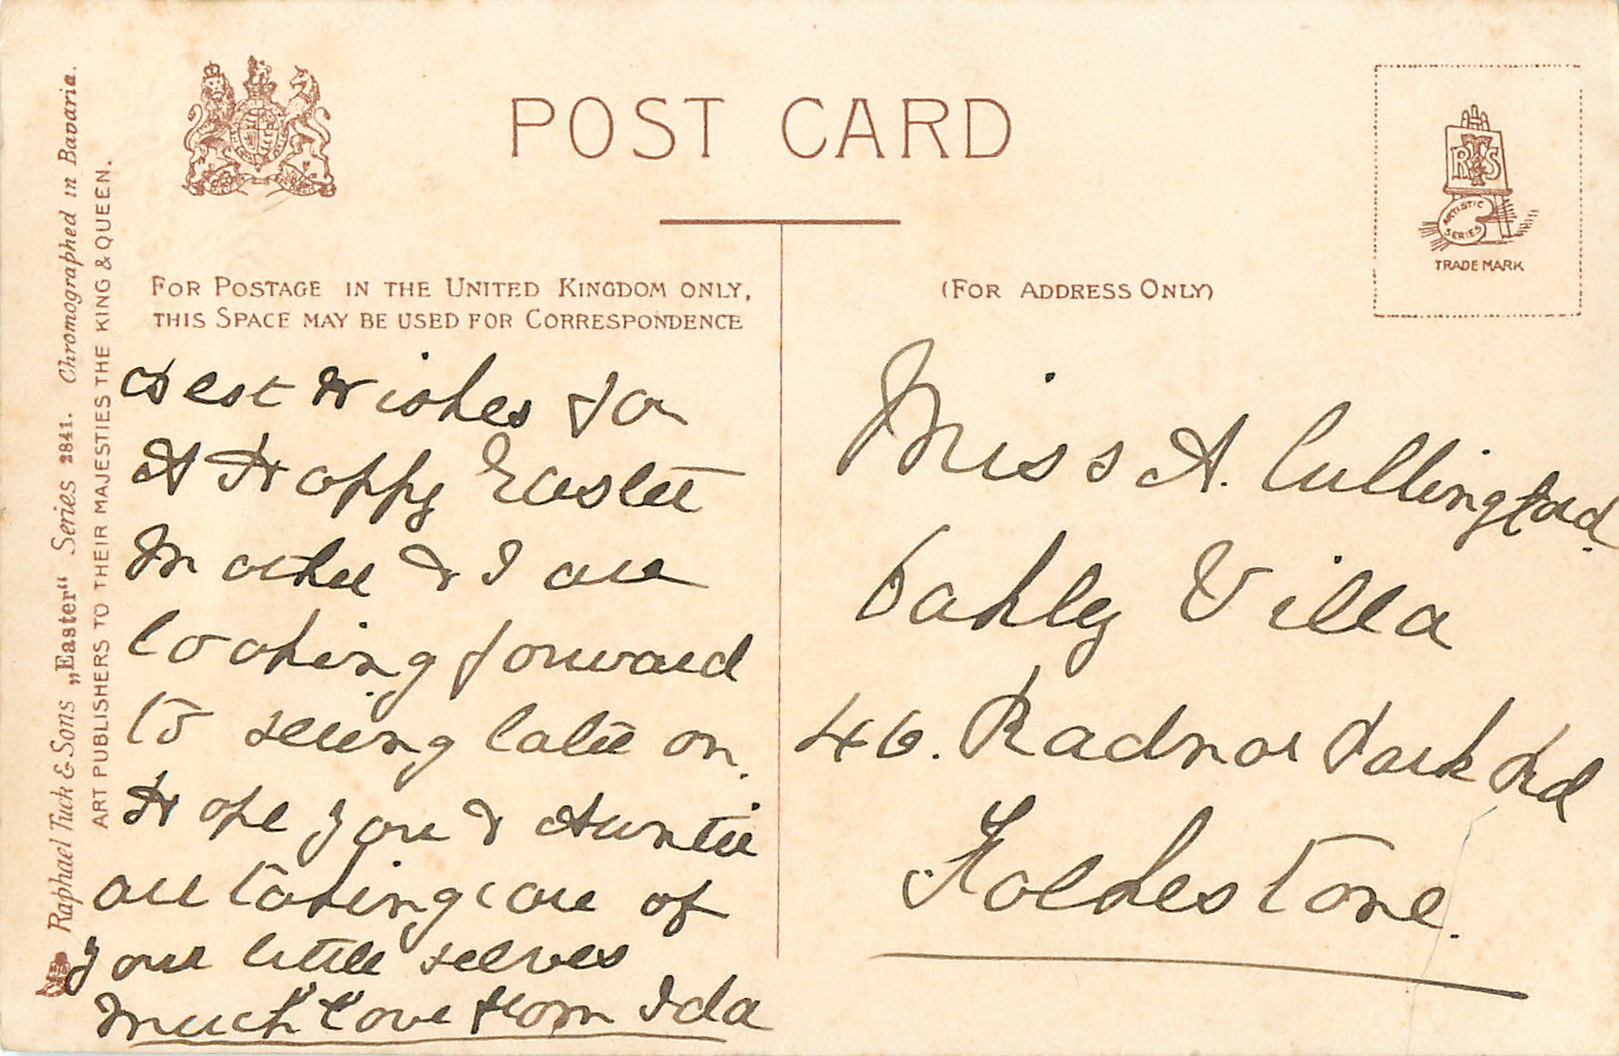 POST CARD
FOR POSTAGE IN THE UNITED KINGDOM ONLY,
THIS SPACE MAY BE USED FOR CORRESPONDENCE
(FOR ADDRESS ONLY)
RTS
ARTISTIC
SERIES
TRADE MARK
Raphael Tuck & Sons „Easter“ Series 2841. Chromographed in Bavaria.
ART PUBLISHERS TO THEIR MAJESTIES THE KING & QUEEN.
Best Wishes for
A Happy Easter
Mother & I are
looking forward
to seeing later on.
Hope you & Auntie
are taking care of
your little selves
Much love from Ida
Miss A. Cullingford.
Oakly Villa
46. Radnor Park Rd
Folkestone.